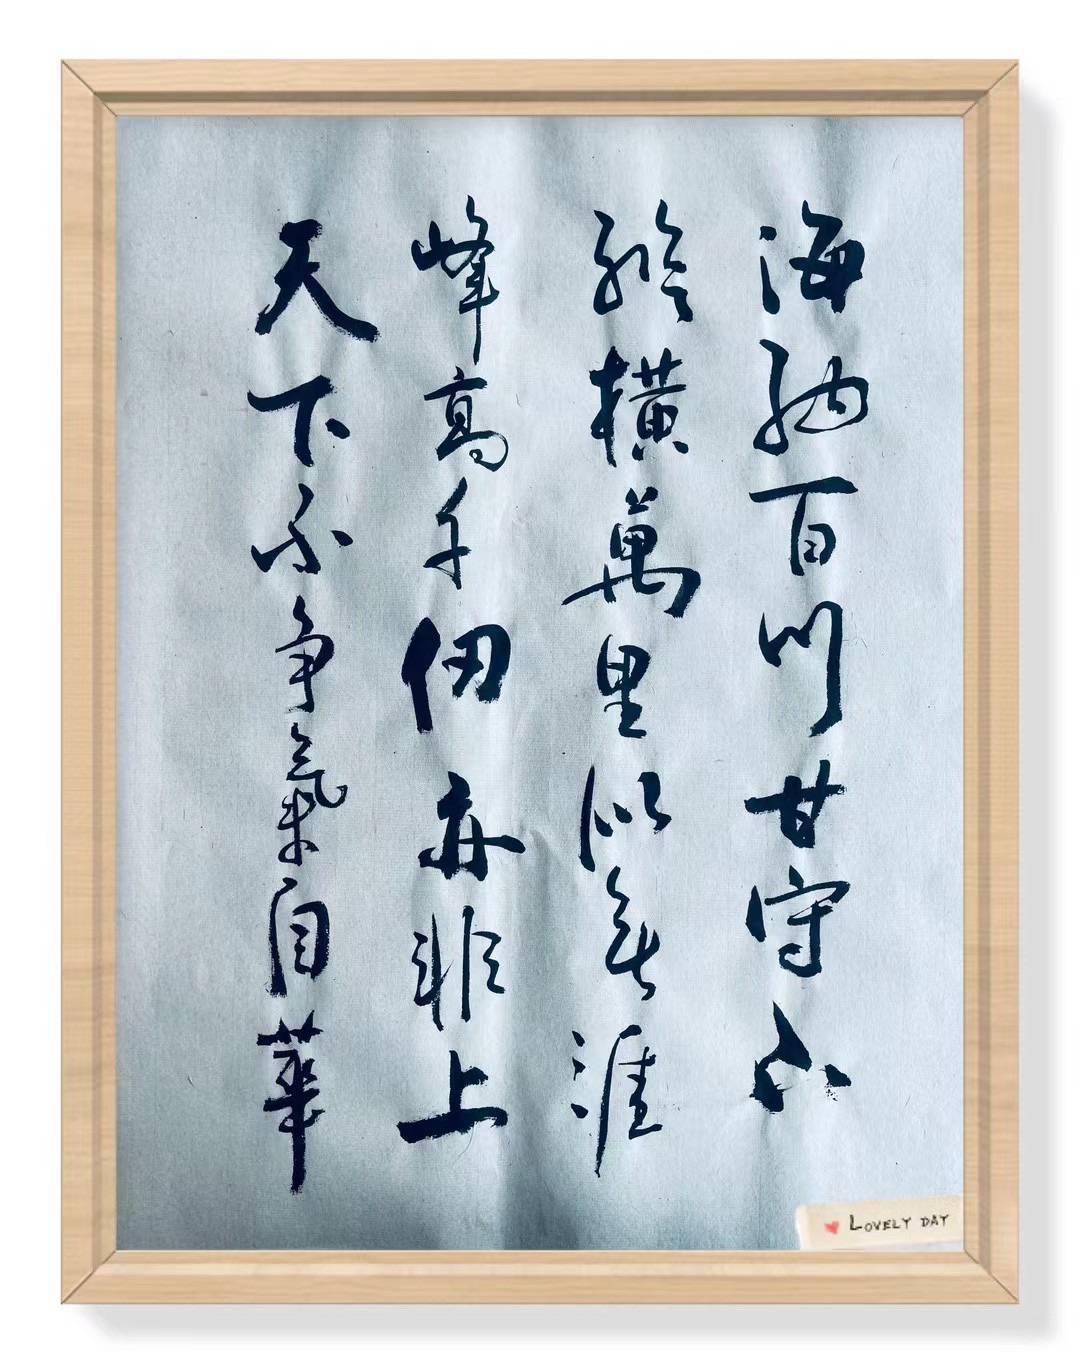 海納百川甘守下
縱橫萬里似無涯
峰高千仞亦非上
天下不争氣自華
LOVELY DAY